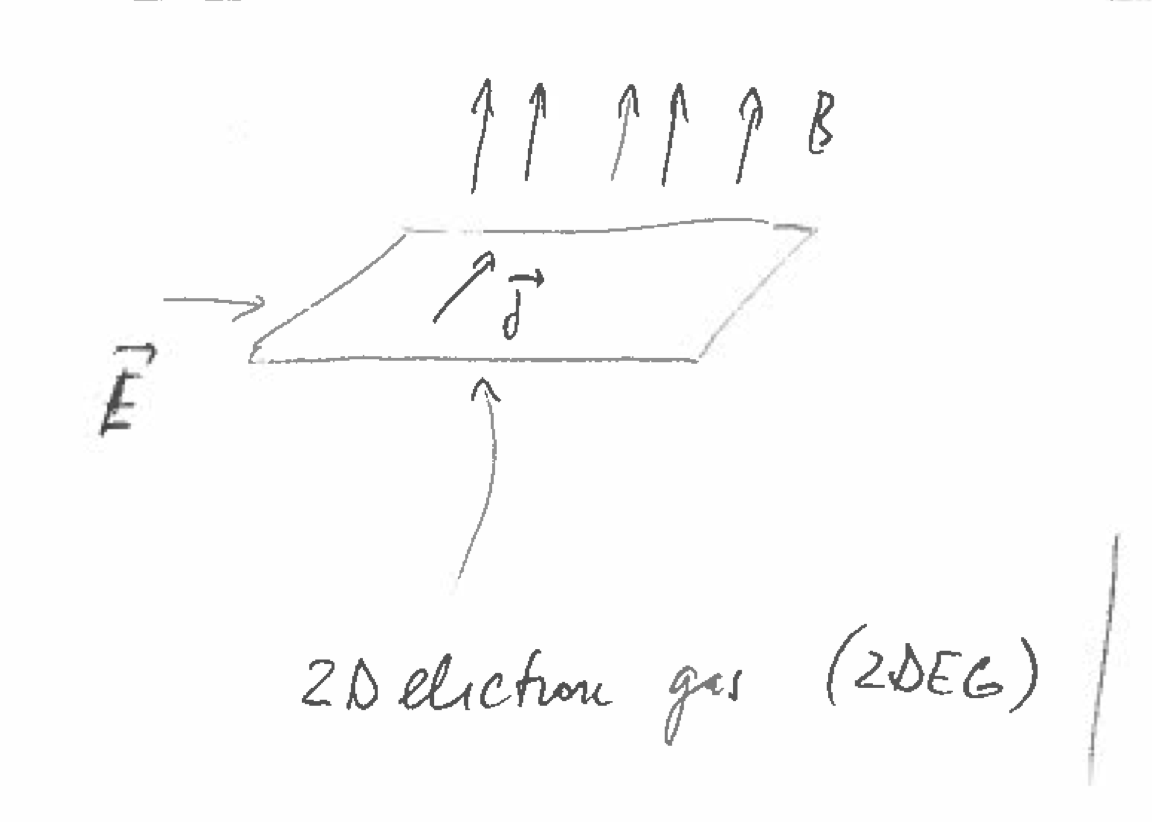 B
j⃗
E⃗
2D electron gas (2DEG)